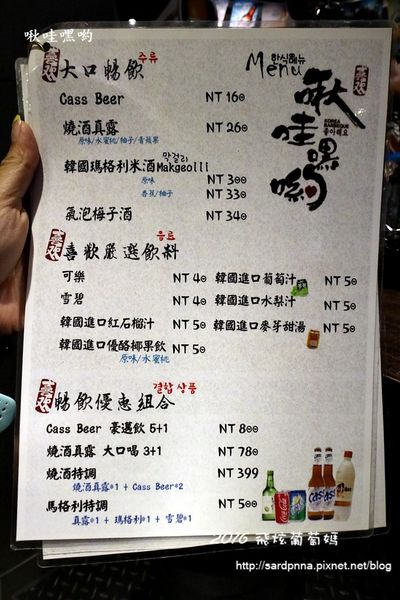 啾哇嘿喲
한식메뉴
Menu
啾哇嘿喲
KOREA
BARBECUE
좋아해요
喜欢
大口暢飲 주류
Cass Beer NT 160
燒酒真露 NT 260
原味/水蜜桃/柚子/青蘋果
막걸리
韓國瑪格利米酒Makgeolli
原味 NT 300
香蕉/柚子 NT 330
氣泡梅子酒 NT 340
喜歡嚴選飲料 음료
可樂 NT 40 韓國進口葡萄汁 NT 50
雪碧 NT 40 韓國進口水梨汁 NT 50
韓國進口紅石榴汁 NT 50 韓國進口麥芽甜湯 NT 50
韓國進口優酪椰果飲 NT 50
原味/水蜜桃
暢飲優惠組合 결합 상품
Cass Beer 豪邁飲 5+1 NT 800
燒酒真露 大口喝 3+1 NT 780
燒酒特調 NT 399
燒酒真露*1 + Cass Beer*2
馬格利特調 NT 500
真露*1 + 瑪格利*1 + 雪碧*1
2016 飛炫葡萄媽
http://sardpnna.pixnet.net/blog